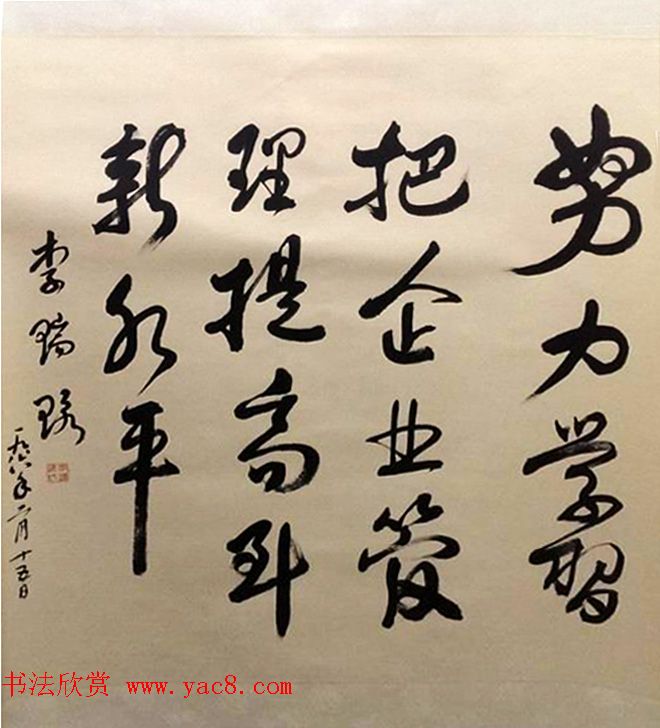 努力学習
把企业管
理提高到
新水平
李瑞环
一九八八年二月十五日
书法欣赏 www.yac8.com